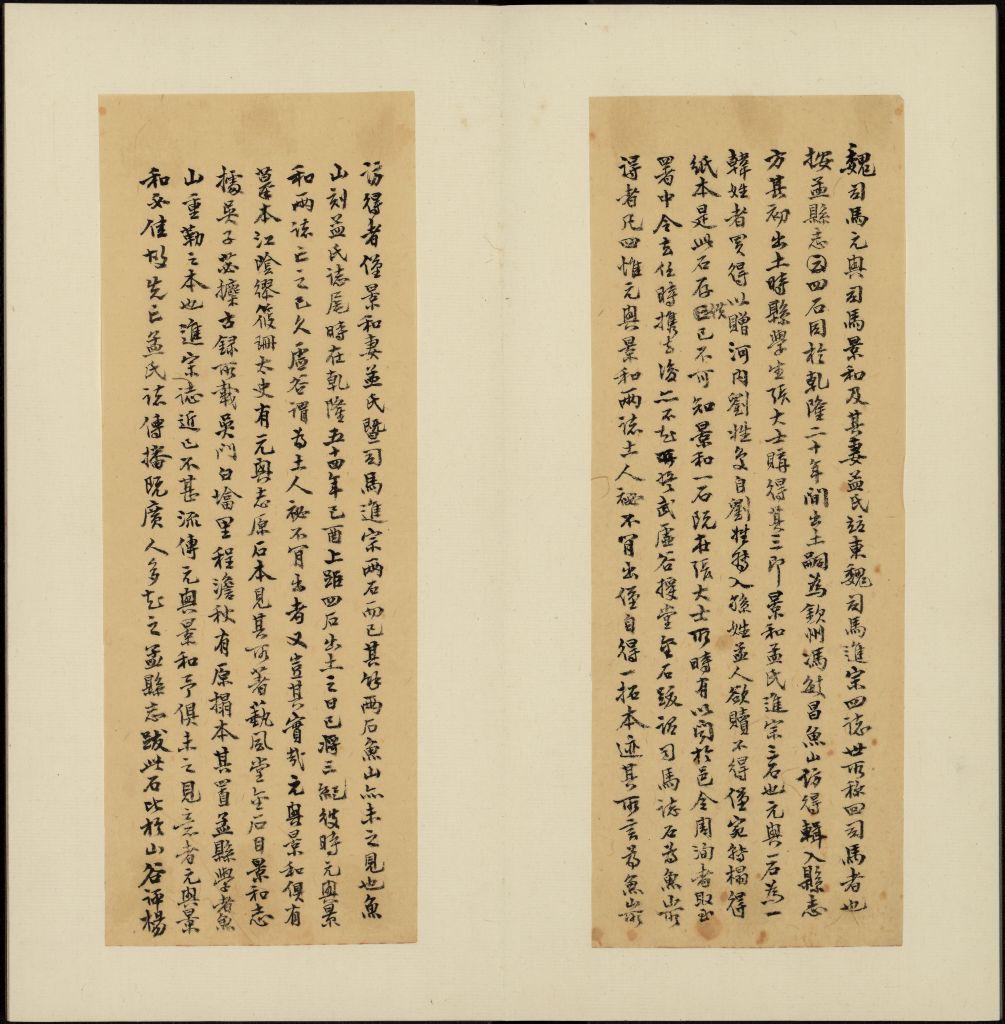 魏司馬元興司馬景和及其妻孟氏玆東魏司馬進宗四誌世所稱四司馬者也
按孟縣志云四石同於乾隆二十年間出土嗣為欽州馮敏昌魚山訪得輯入縣志
方其初出土時縣學生張大士購得其三即景和孟氏進宗三石也元興一石為一
韓姓者買得以贈河內劉姓复自劉姓轉入孫姓孟人欲贖不得僅宛轉搨得
紙本是此石存佚已不可知景和一石既在張大士所時有以聞於邑令周洵者取至
署中令去任時携去後亦不知所武虛谷授堂金石跋謂司馬誌石為魚山所
得者凡四惟元興景和兩誌土人祕不肯出僅自得一拓本迹其所言為魚山所
訪得者僅景和妻孟氏暨司馬進宗兩石而已其餘兩石魚山亦未之見也魚
山刻孟氏誌尾時在乾隆五十四年己酉上距四石出土之日已將三紀彼時元興景
和兩誌亡之已久虛谷謂為土人祕不肯出者又豈其實哉元興景和俱有
摹本江陰繆筱珊太史有元興志原石本見其所著藝風堂金石目景和志
據吳子苾攈古錄所載吳門白堉里程澹秋有原搨本其置孟縣學者魚
山重勒之本也進宗誌近已不甚流傳元興景和予俱未之見意者元興景
和文佳故先亡孟氏誌傳播既廣人多知之孟縣志跋此石比於山谷評楊